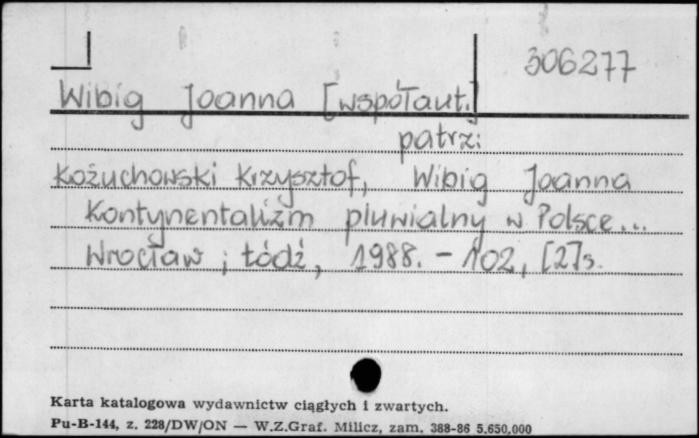 306277
Wibig Joanna [współaut.]
patrz:
Kożuchowski Krzysztof, Wibig Joanna
Kontynentalizm pluwialny w Polsce...
Wrocław ; Łódź, 1988. - 102, [2] s.
Karta katalogowa wydawnictw ciągłych i zwartych.
Pu-B-144, z. 228/DW/ON — W.Z.Graf. Milicz, zam. 388-86 5.650,000